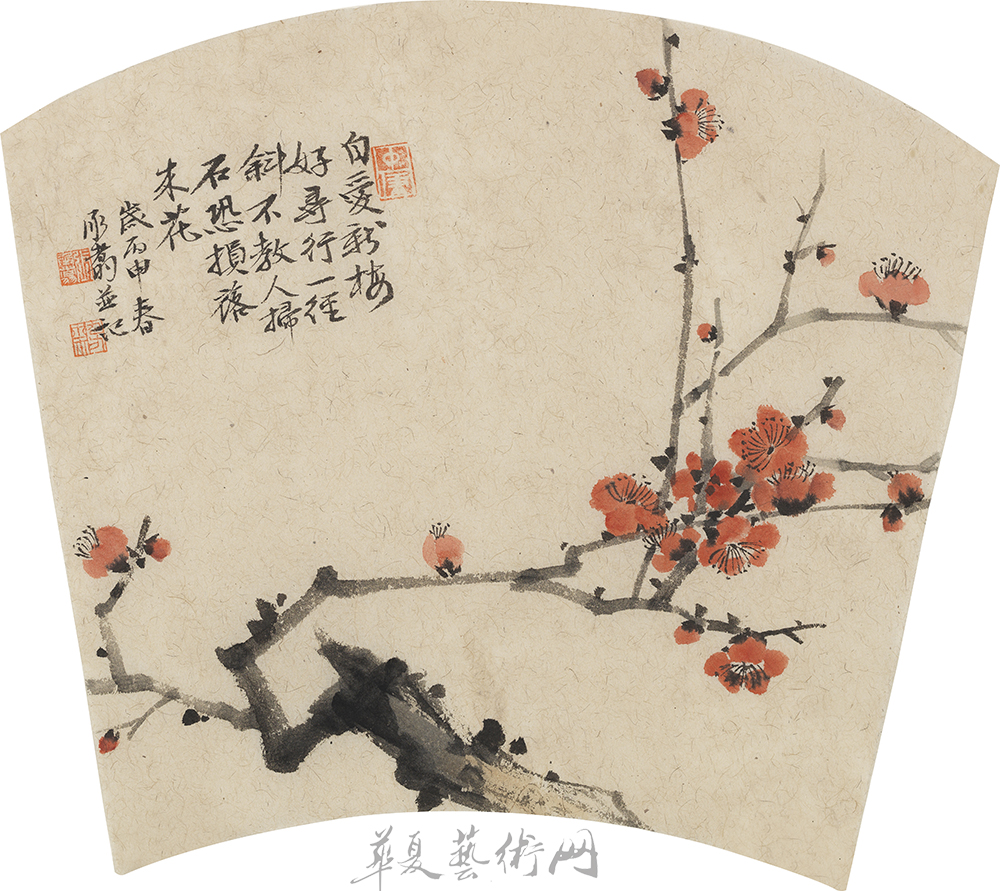 自愛新梅
好尋行一徑
斜不教人掃
石恐損落
来花
歲丙申春
並記
華夏藝術网